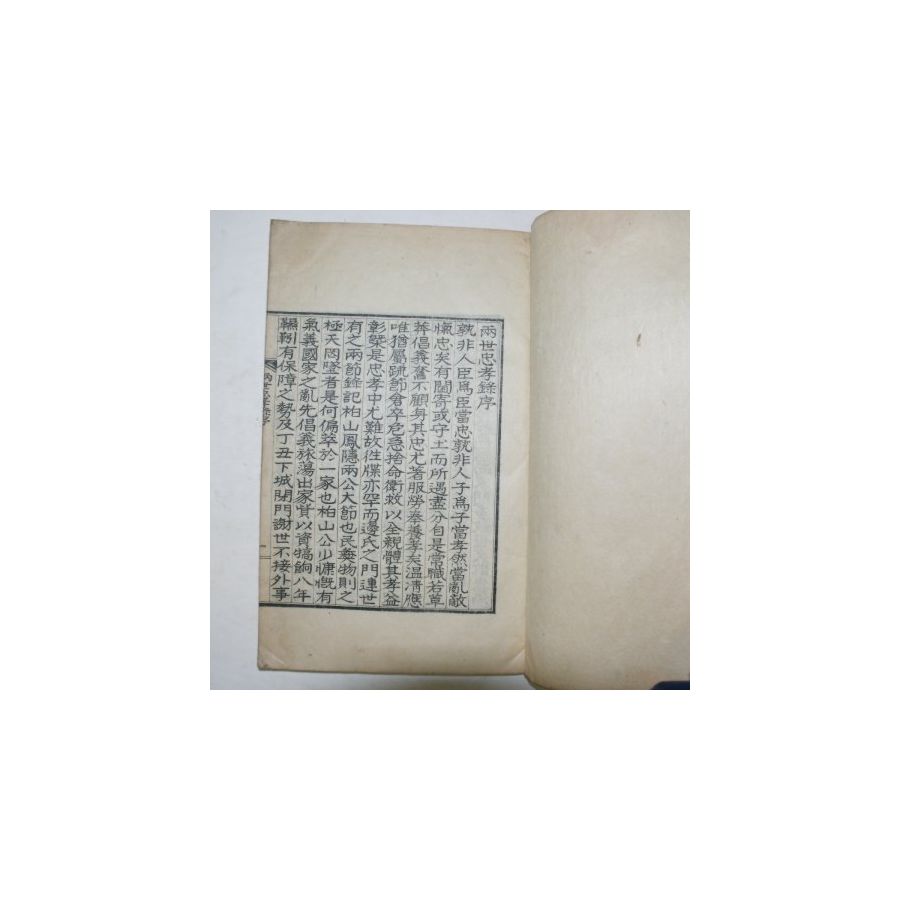 兩世忠孝錄序
孰非人臣爲臣當忠孰非人子爲子當孝然當亂敵
愾忠矣有閫寄或守土而所遇盡分自是常職若草
莽倡義奮不顧身其忠尤著服勞奉養孝矣溫凊應
唯猶屬踈節倉卒危急捨命衛救以全親體其孝益
彰槩是忠孝中尤難故往牒亦罕而邊氏之門連世
有之兩節錄記柏山鳳隱兩公大節也民彝物則之
極天罔墜者是何偏萃於一家也柏山公少慷慨有
氣義國家之亂先倡義旅蕩出家貲以資犒餉八年
有保障之勢及丁丑下城閉門謝世不接外事
兩世忠孝錄序
一